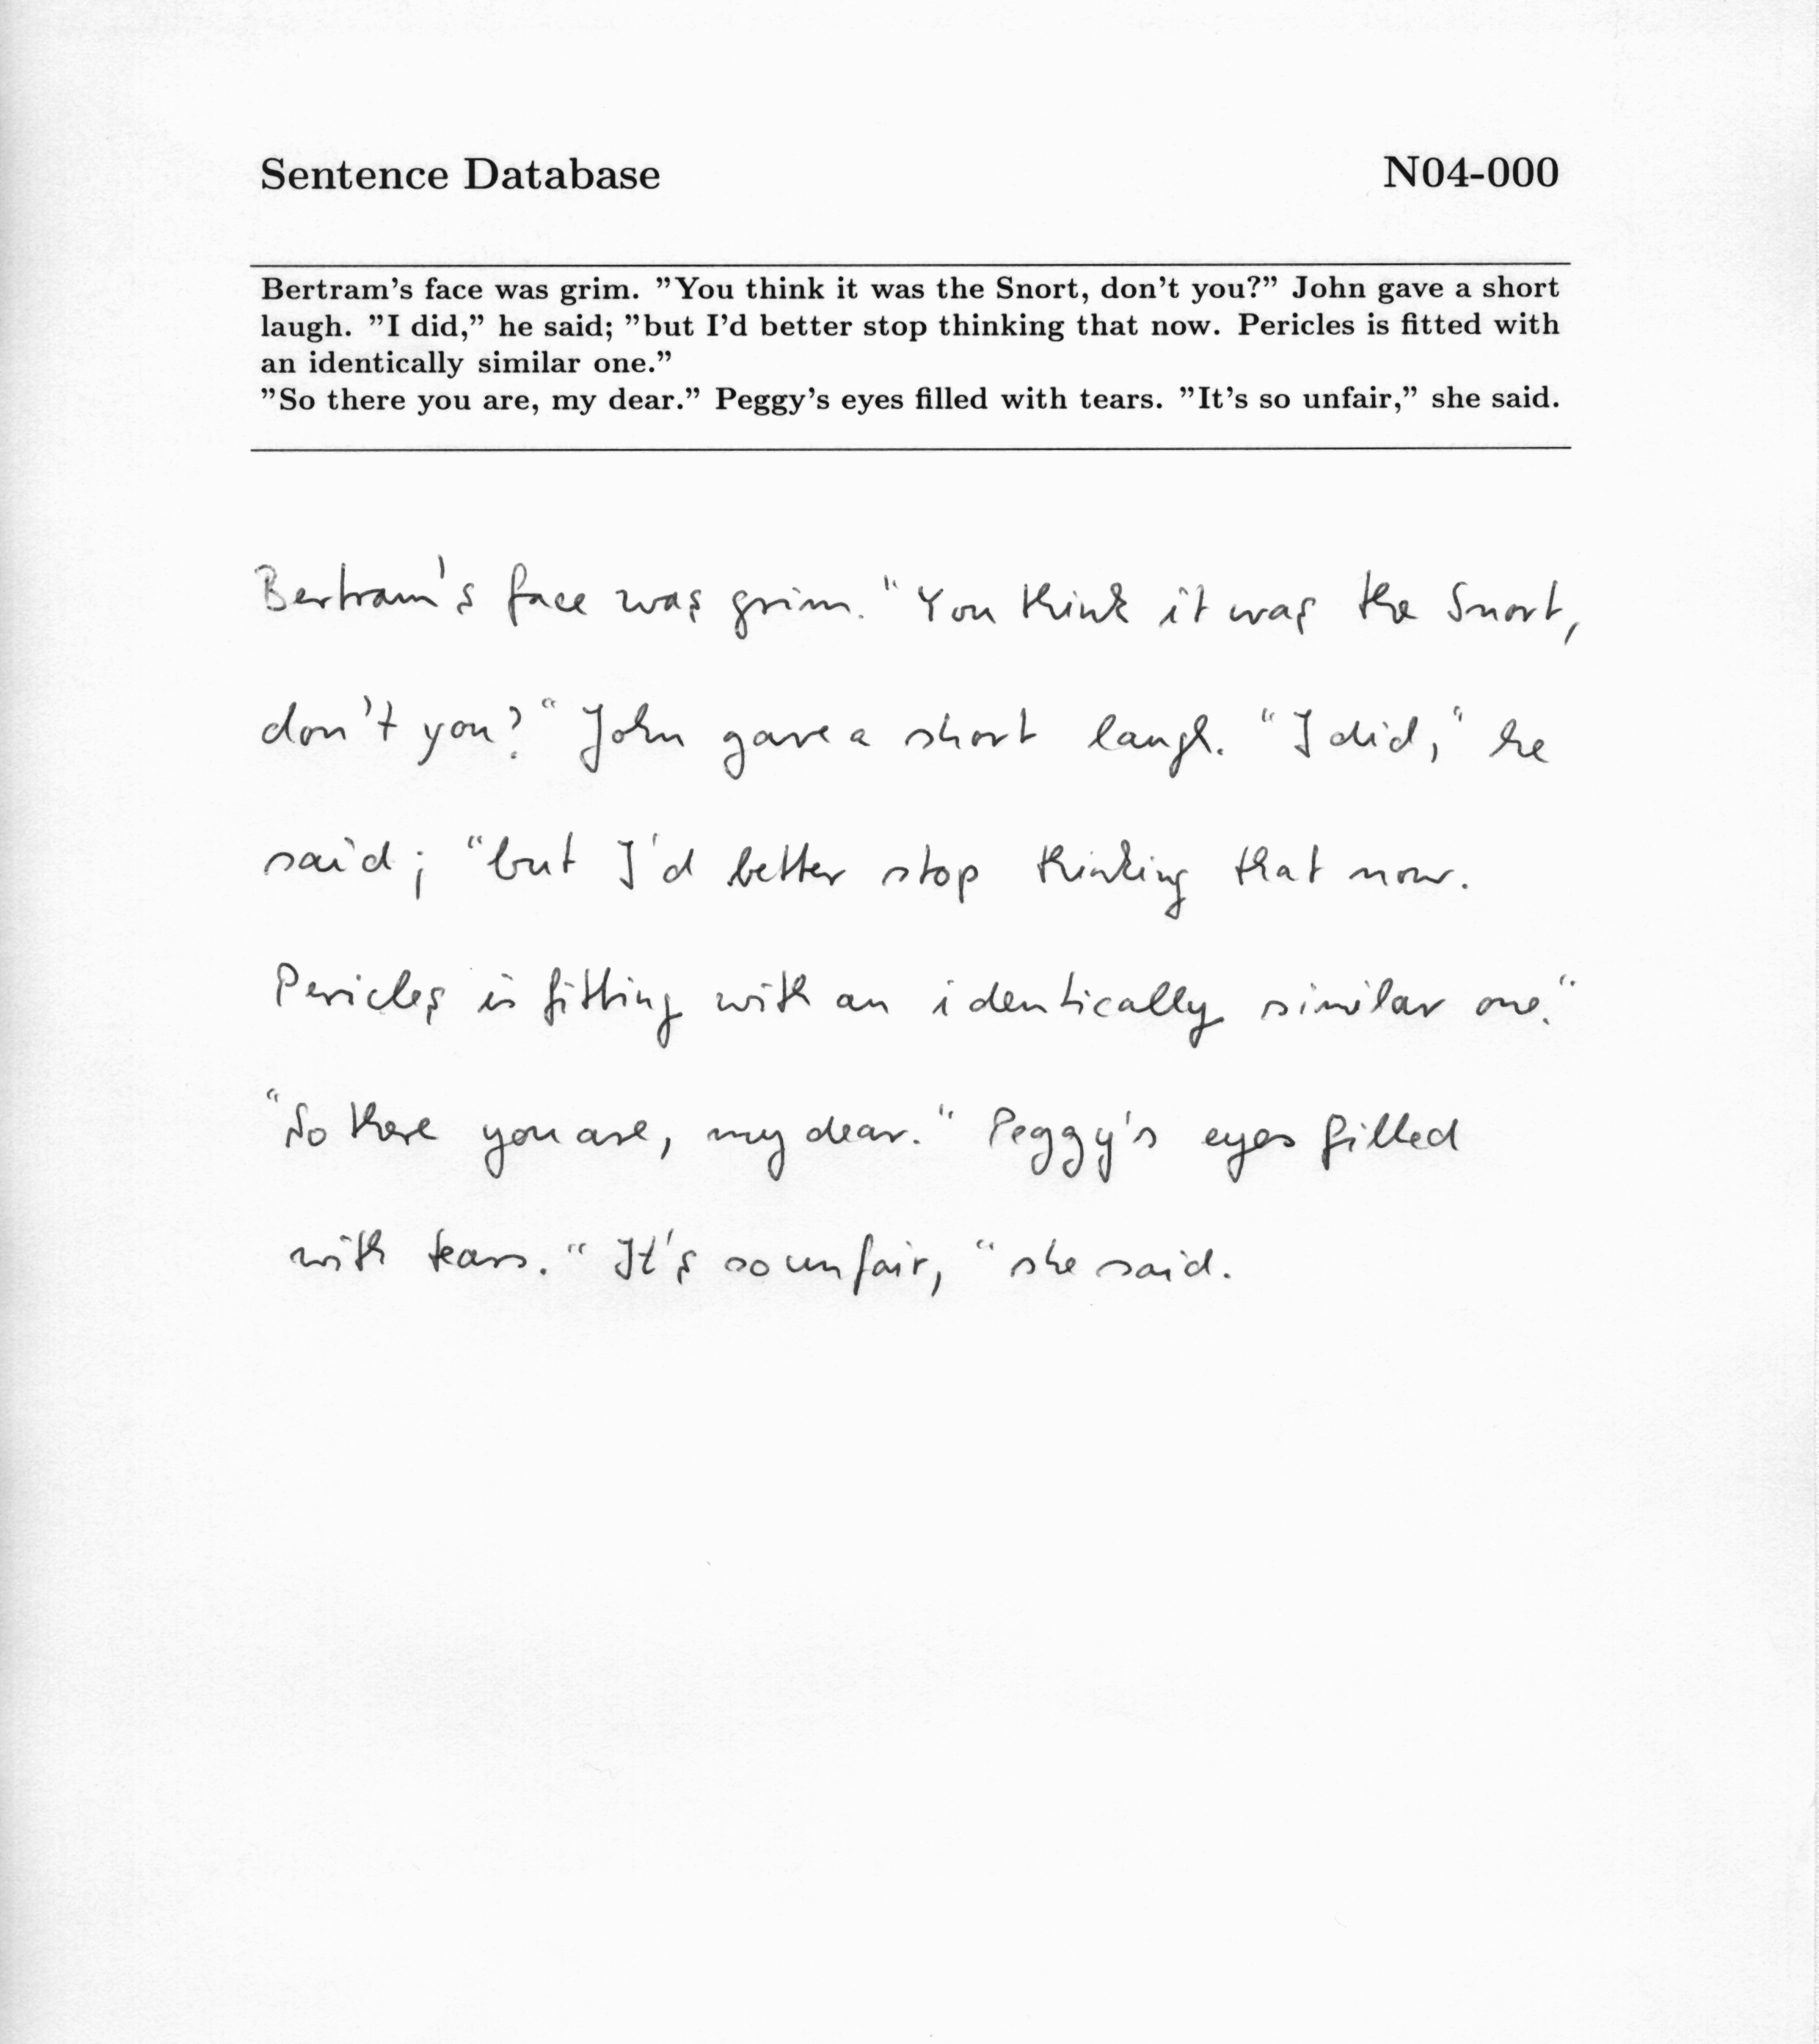 Sentence Database N04-000
Bertram's face was grim. ”You think it was the Snort, don't you?” John gave a short
laugh. ”I did,” he said; ”but I'd better stop thinking that now. Pericles is fitted with
an identically similar one.”
”So there you are, my dear.” Peggy's eyes filled with tears. ”It's so unfair,” she said.
Bertram's face was grim. "You think it was the Snort,
don't you?" John gave a short laugh. "I did," he
said; "but I'd better stop thinking that now.
Pericles is fitting with an identically similar one."
"So there you are, my dear." Peggy's eyes filled
with tears. "It's so unfair, "she said.